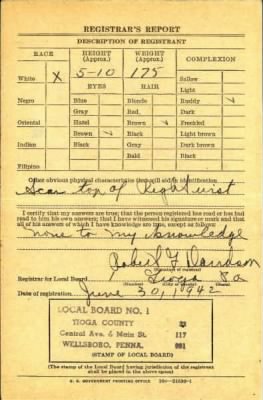 REGISTRAR'S REPORT
DESCRIPTION OF REGISTRANT
RACE HEIGHT (Approx.) WEIGHT (Approx.) COMPLEXION
White X 5-10 175 Sallow
EYES HAIR Light
Negro Blue Blonde Ruddy ✓
Gray Red Dark
Oriental Hazel Brown ✓ Freckled
Brown ✓ Black Light brown
Indian Black Gray Dark brown
Bald Black
Filipino
Other obvious physical characteristics that will aid in identification
Scar top of Right wrist
I certify that my answers are true; that the person registered has read or has had
read to him his own answers; that I have witnessed his signature or mark and that
all of his answers of which I have knowledge are true, except as follows:
none to my knowledge
F Davidson
Registrar for Local Board Tioga Pa
(Number) (City or county) (State)
Date of registration June 30, 1942
LOCAL BOARD NO. 1
TIOGA COUNTY 23
Central Ave. & Main St. 117
WELLSBORO, PENNA. 001
(STAMP OF LOCAL BOARD)
(The stamp of the Local Board having jurisdiction of the registrant
shall be placed in the above space)
U. S. GOVERNMENT PRINTING OFFICE 16—21630-1